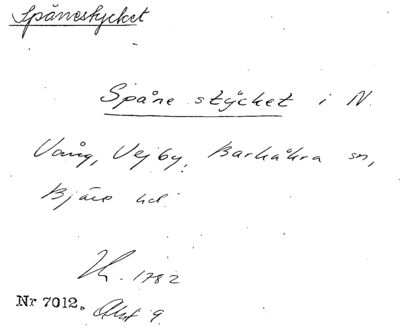 Spånestycket
Spåne stycket i N.
Vång, Vejby, Barkåkra sn,
Bjäre hd.
1782
Nr 7012. Akt 9.